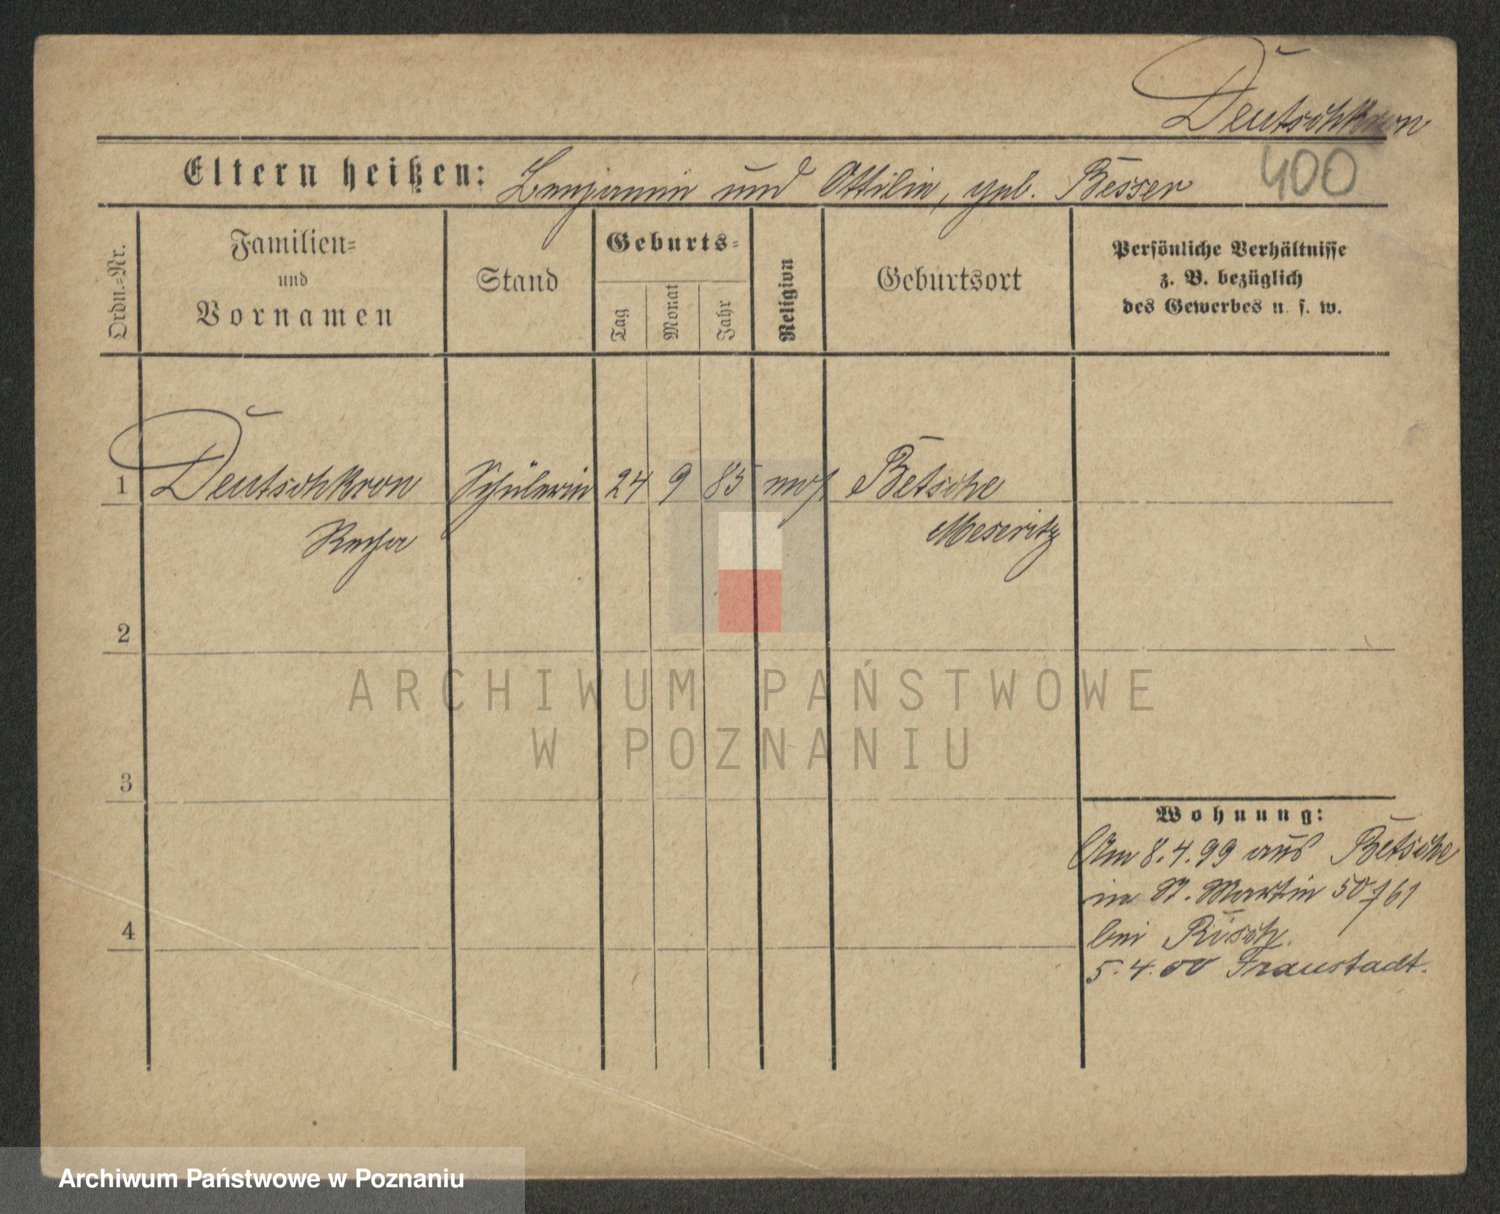 Deutschkron
400
Eltern heißen: Benjamin und Ottilie, geb. Besser
Ordn.-Nr.
Familien- und Vornamen
Stand
Geburts-
Tag
Monat
Jahr
Religion
Geburtsort
Persönliche Verhältnisse
z. B. bezüglich
des Gewerbes u. s. w.
1 Deutschkron Schülerin 24 9 85 mos Betsche
Recha Meseritz
2
3
4
Wohnung:
Am 8.4.99 aus Betsche
in St. Martin 50/61
bei Risch.
5.4.00 Fraustadt.
ARCHIWUM PAŃSTWOWE
W POZNANIU
Archiwum Państwowe w Poznaniu